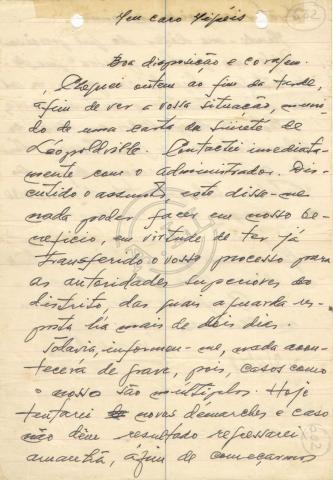 Meu caro
Boa disposição e coragem.
Cheguei ontem ao fim da tarde,
afim de ver a vossa situação, muni-
do de uma carta da Sureté de
Léopoldville. Contactei imediata-
mente com o administrador. Dis-
cutido o assunto este disse-me
nada poder fazer em nosso be-
nefício, em virtude de ter já
transferido o vosso processo para
as autoridades superiores do
distrito, das quais aguarda res-
posta há mais de dois dias.
Todavia, informou-me, nada acon-
tecera de grave, pois, casos como
o nosso são múltiplos. Hoje
tentarei novas démarches e caso
não dêm resultado regressarei
amanhã, afim de começarmos